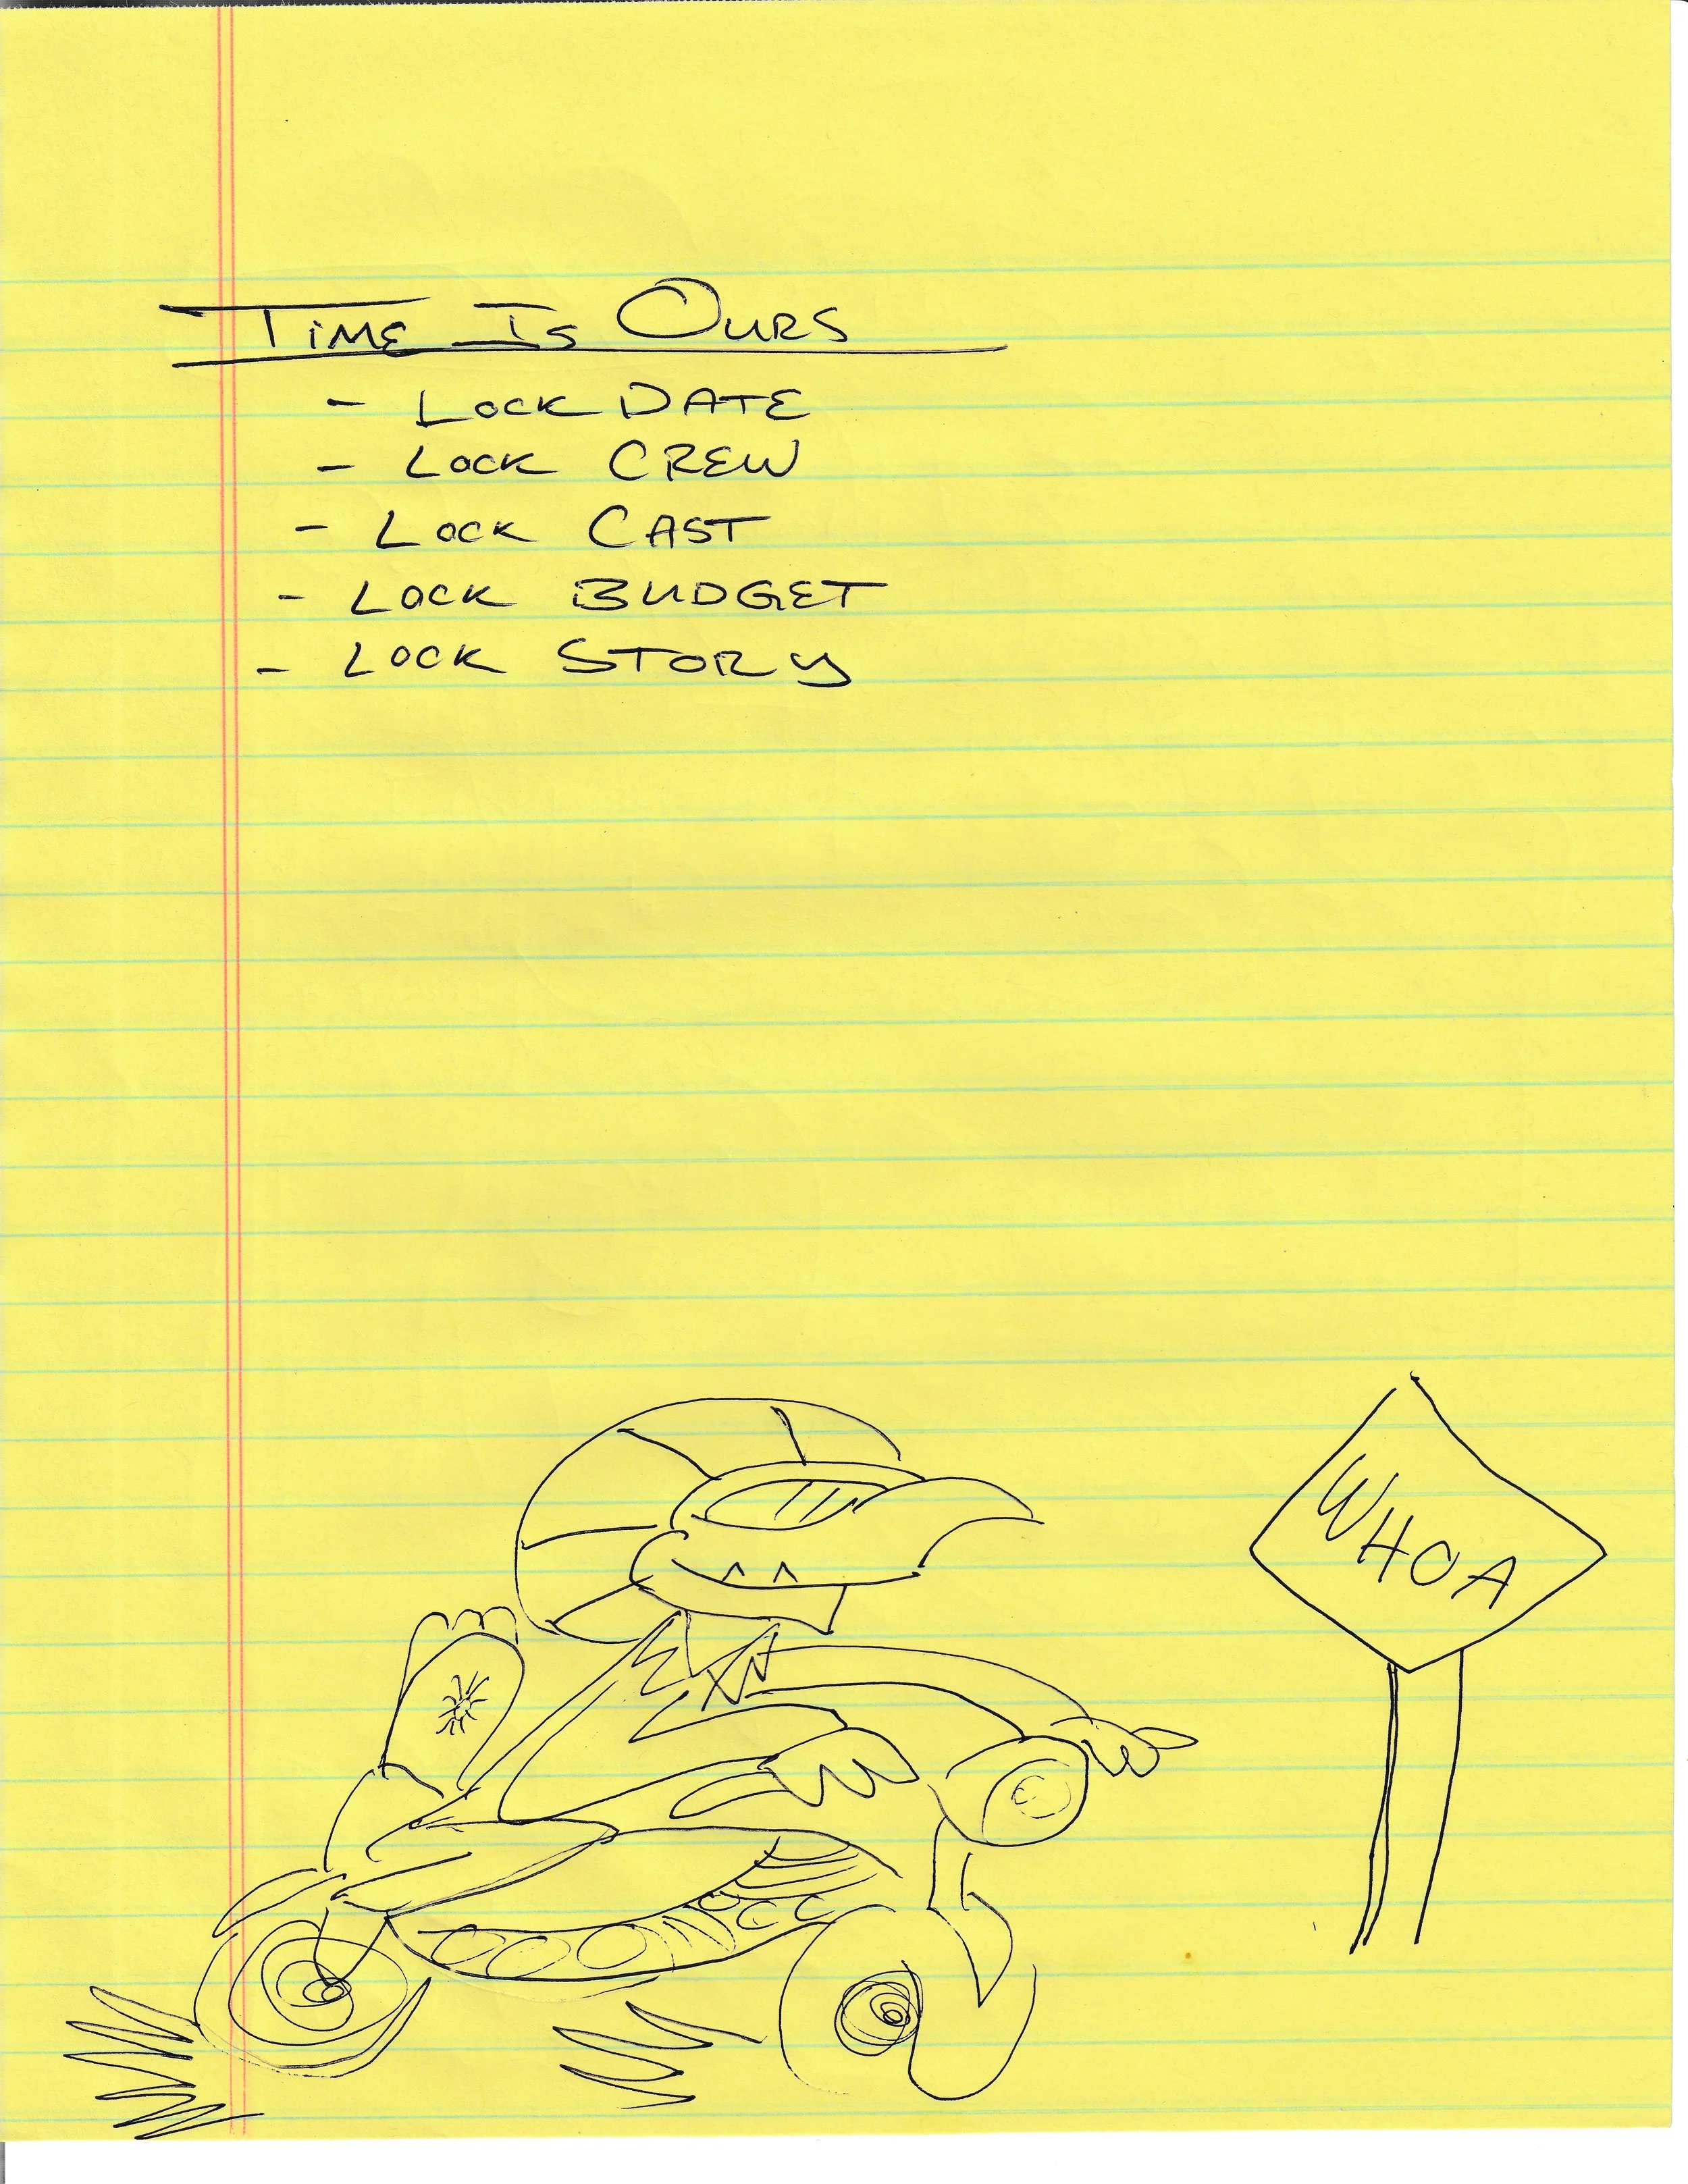 TIME IS OURS
- LOCK DATE
- LOCK CREW
- LOCK CAST
- LOCK BUDGET
- LOCK STORY
WHOA